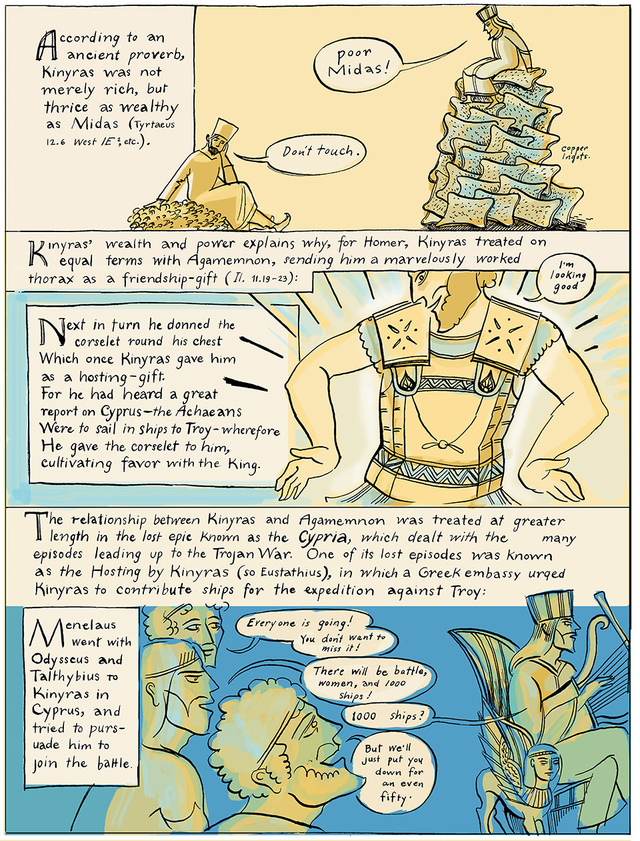 According to an
ancient proverb,
Kinyras was not
merely rich, but
thrice as wealthy
as Midas (Tyrtaeus
12.6 West IE², etc.).
poor
Midas!
Don't touch.
copper
ingots.
Kinyras' wealth and power explains why, for Homer, Kinyras treated on
equal terms with Agamemnon, sending him a marvelously worked
thorax as a friendship-gift (Il. 11.19-23):
I'm
looking
good
Next in turn he donned the
corselet round his chest
Which once Kinyras gave him
as a hosting-gift.
For he had heard a great
report on Cyprus—the Achaeans
Were to sail in ships to Troy-wherefore
He gave the corselet to him,
cultivating favor with the King.
The relationship between Kinyras and Agamemnon was treated at greater
length in the lost epic known as the Cypria, which dealt with the many
episodes leading up to the Trojan War. One of its lost episodes was known
as the Hosting by Kinyras (so Eustathius), in which a Greek embassy urged
Kinyras to contribute ships for the expedition against Troy:
Menelaus
went with
Odysseus and
Talthybius to
Kinyras in
Cyprus, and
tried to purs-
uade him to
join the battle.
Everyone is going!
You don't want to
miss it!
There will be battle,
women, and 1000
ships!
1000 ships?
But we'll
just put you
down for
an even
fifty.